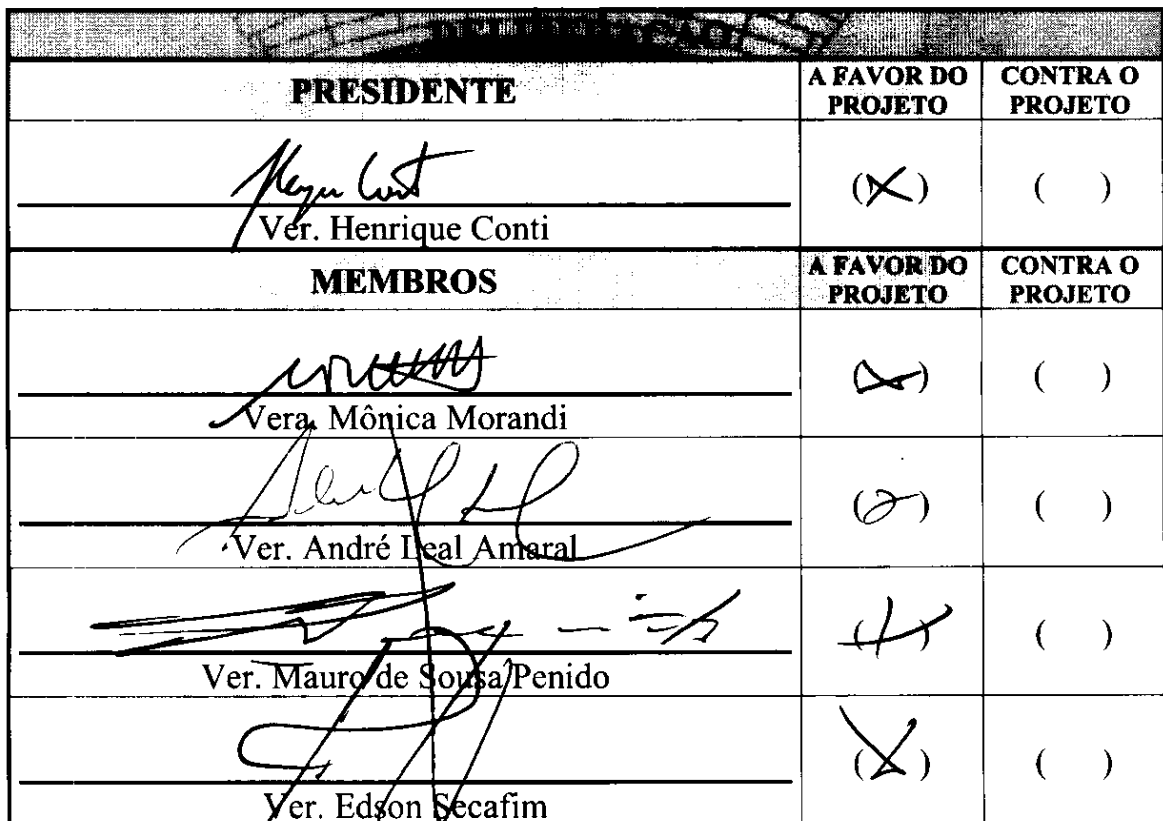 DELIBERAÇÃO
PRESIDENTE
A FAVOR DO PROJETO
CONTRA O PROJETO
(X)
( )
Ver. Henrique Conti
MEMBROS
A FAVOR DO PROJETO
CONTRA O PROJETO
(X)
( )
Vera. Mônica Morandi
( )
Ver. André Leal Amaral
( )
Ver. Mauro de Sousa Penido
(X)
( )
Ver. Edson Secafim